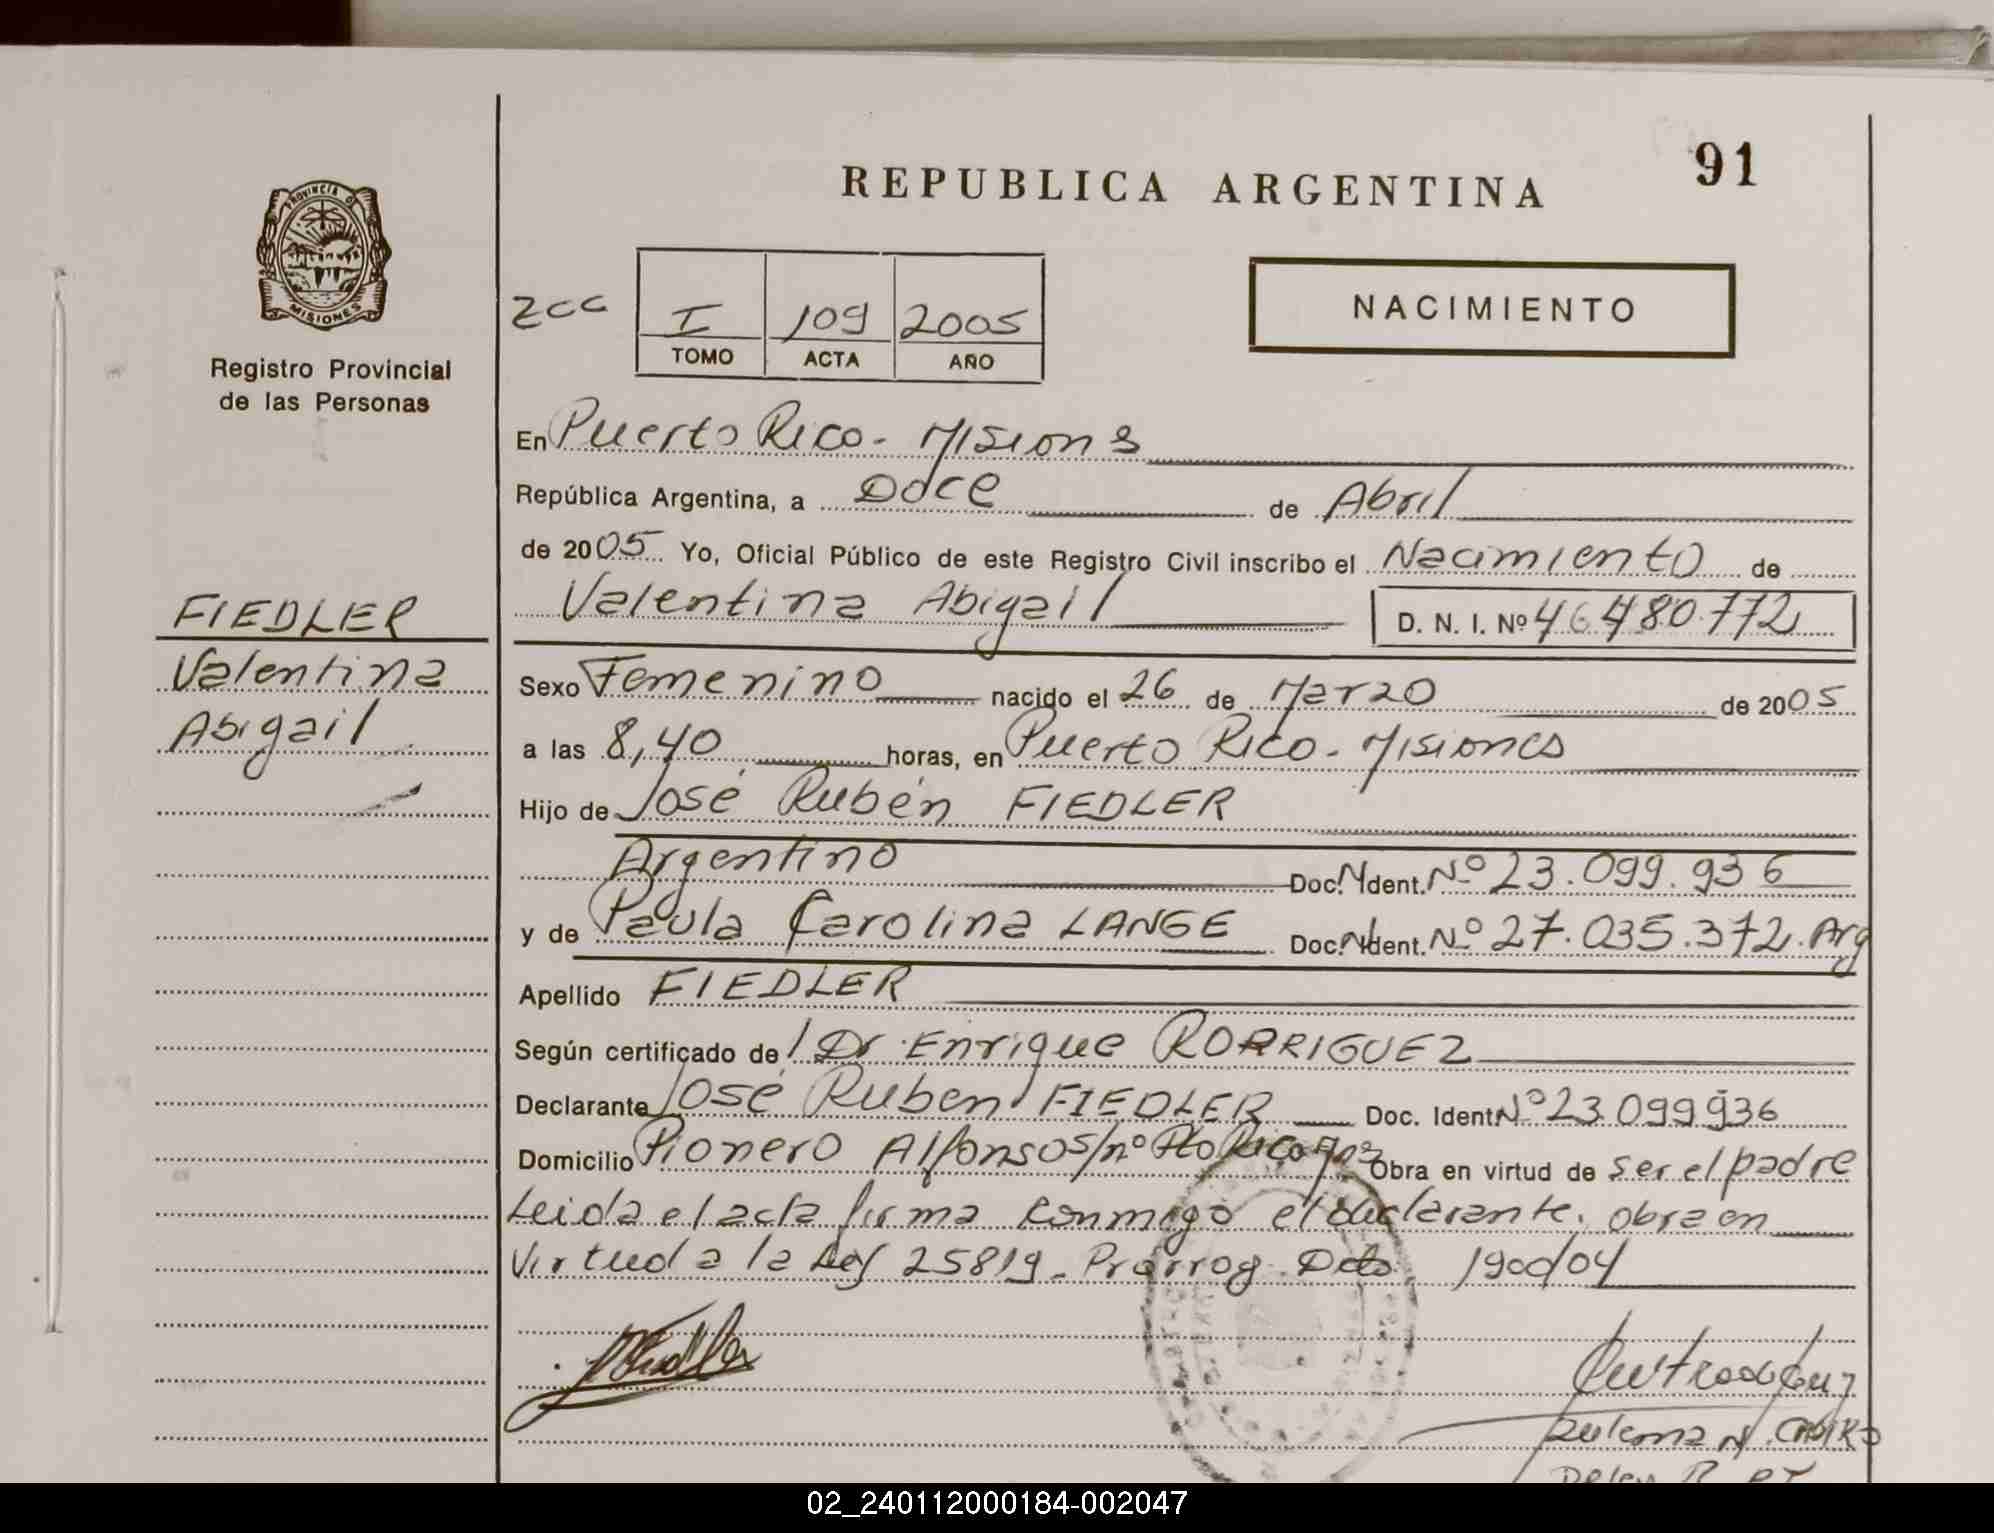 REPUBLICA ARGENTINA
91
PROVINCIA DE
MISIONES
Registro Provincial
de las Personas
zcc
I 109 2005
TOMO ACTA AÑO
NACIMIENTO
En Puerto Rico - Misiones
República Argentina, a Doce de Abril
de 2005 Yo, Oficial Público de este Registro Civil inscribo el Nacimiento de
Valentina Abigail D. N. I. Nº 46.480.772
FIEDLER
Valentina
Abigail
Sexo Femenino nacido el 26 de Marzo de 2005
a las 8,40 horas, en Puerto Rico - Misiones
Hijo de José Rubén FIEDLER
Argentino Doc. N Ident. Nº 23.099.936
y de Paula Carolina LANGE Doc. N Ident. Nº 27.035.372. Arg
Apellido FIEDLER
Según certificado de Dr Enrique RODRIGUEZ
Declarante José Ruben FIEDLER Doc. Ident Nº 23 099936
Domicilio Pionero Alfonso s/nº Pto Rico Obra en virtud de ser el padre
Leida el acta firma conmigo el declarante. obra en
Virtud a la Ley 25819 - Prorrog. Dcto 1900/04
Zulema N.
02_240112000184-002047